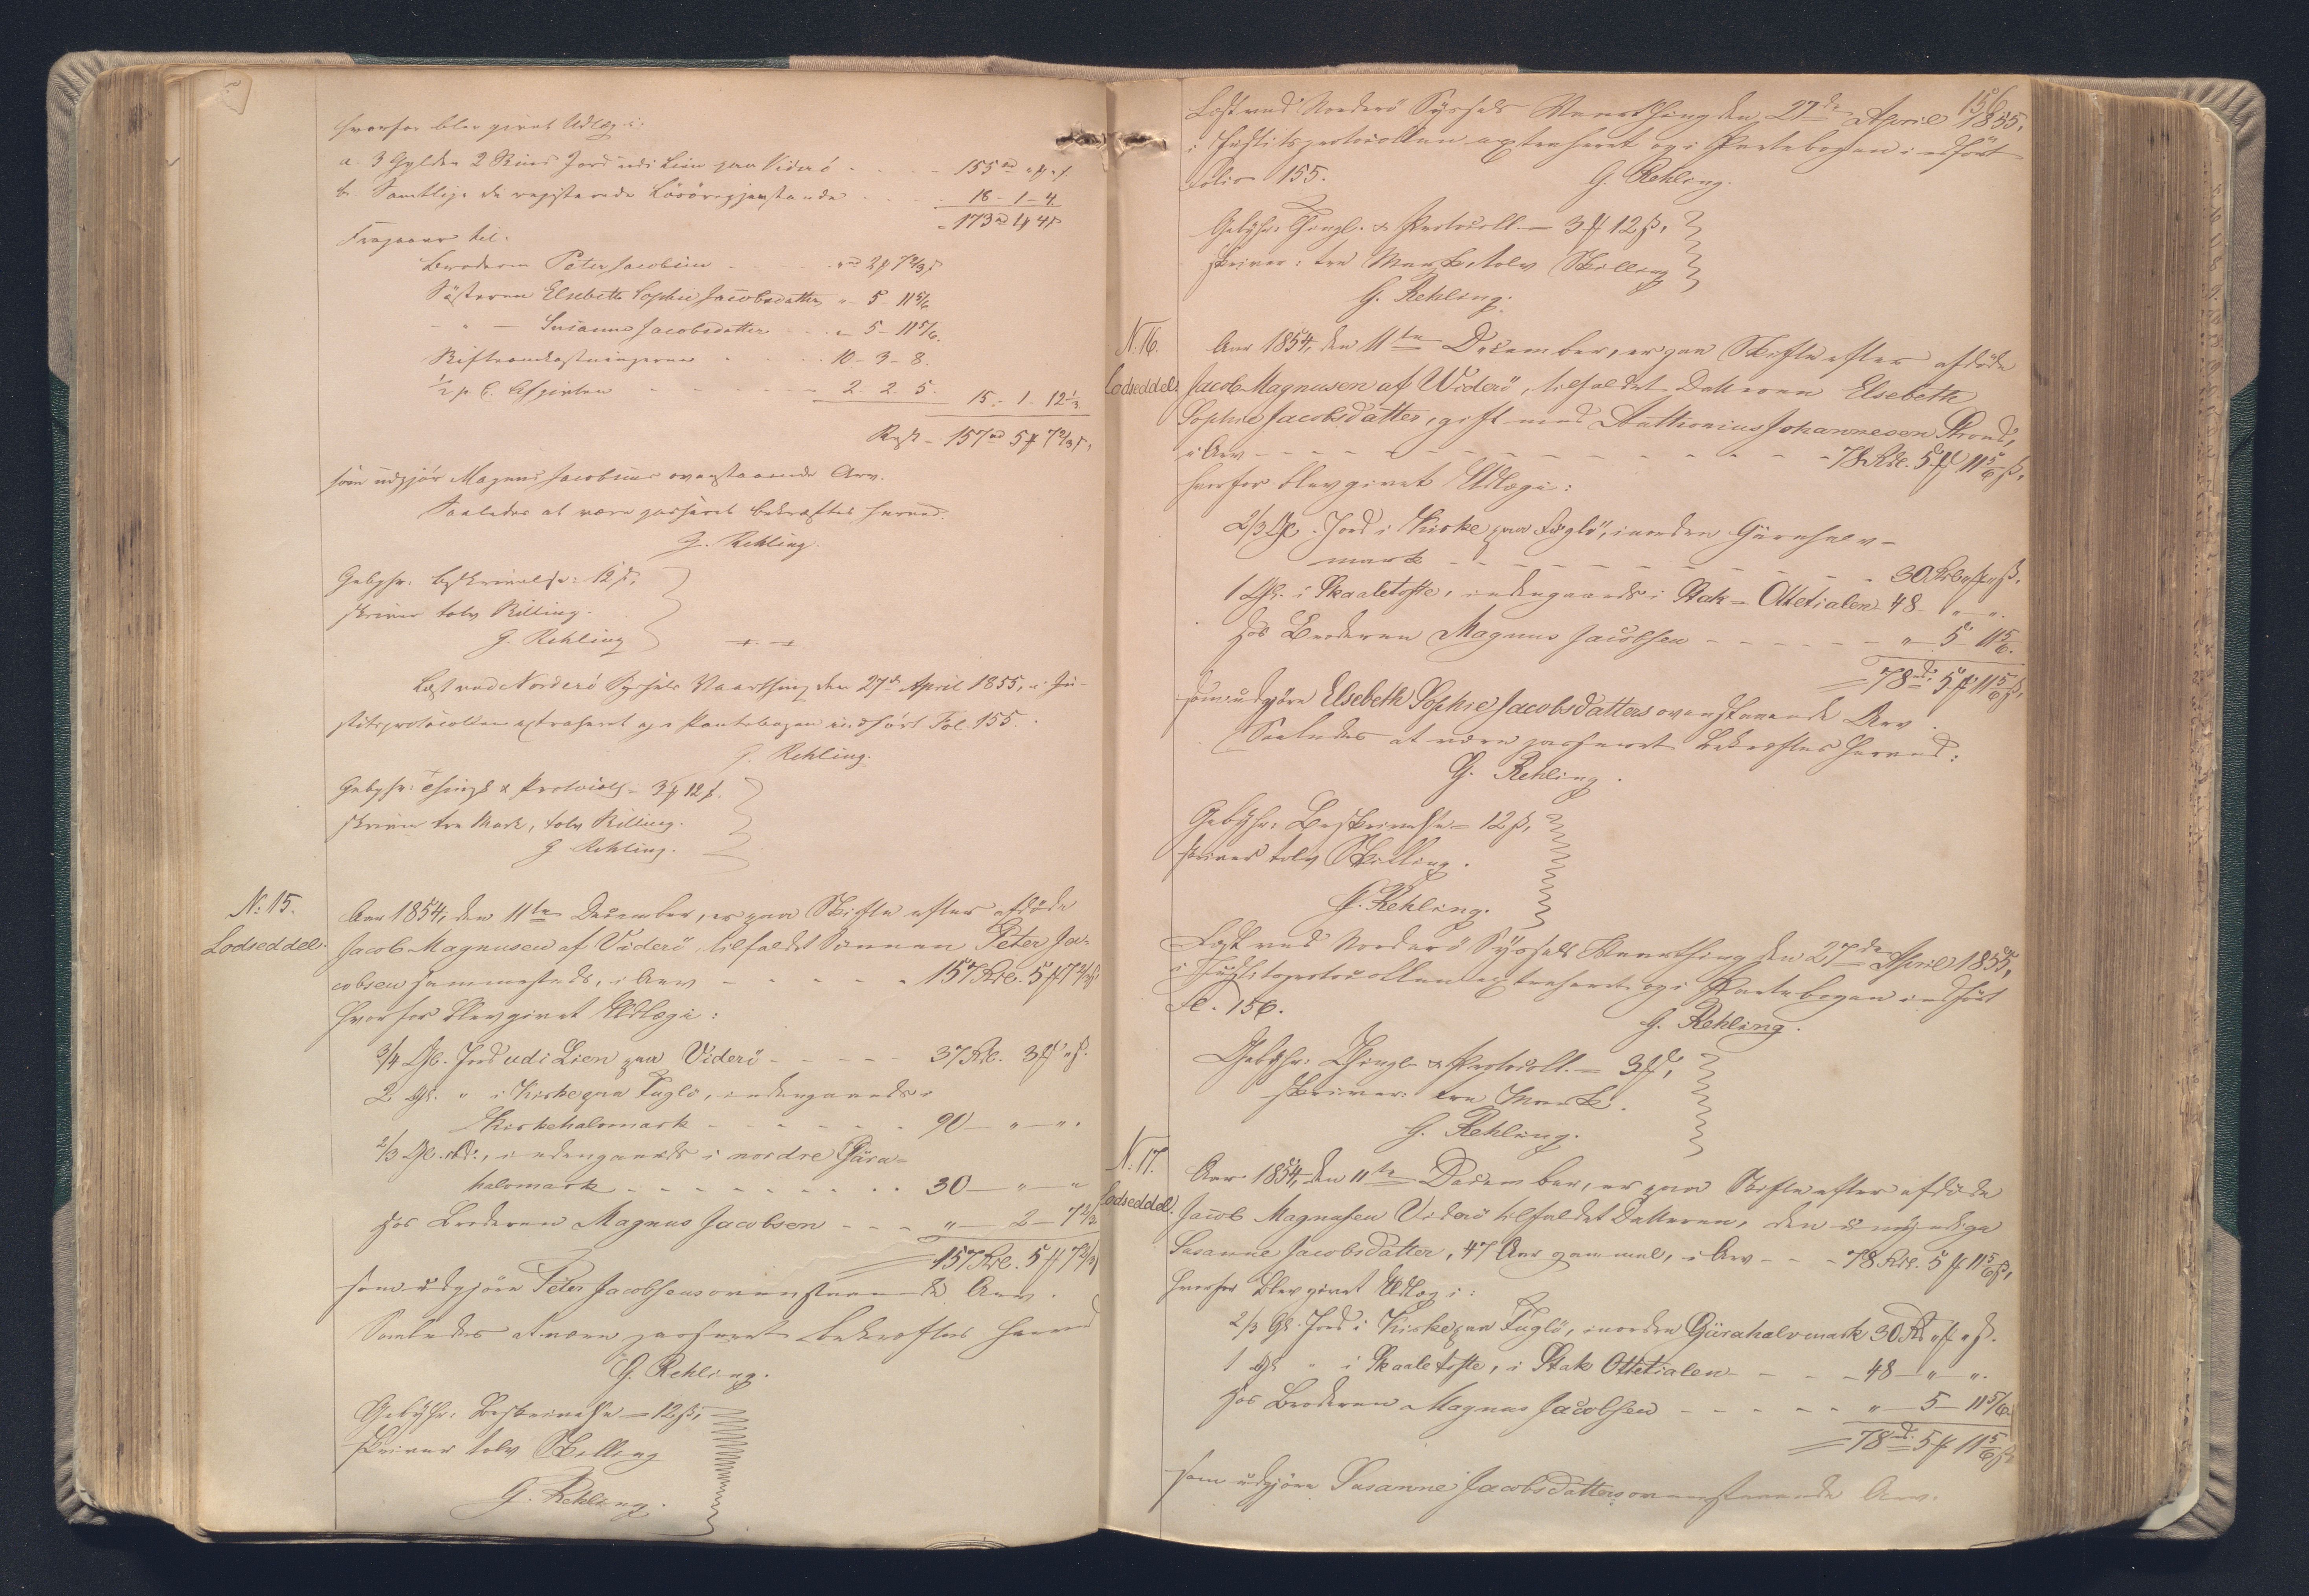 hvorfor blev givet Udlæg i:
a. 3 Gylden 2 Skind Jord udi Lien paa Viderö - - - 155 rd " ₰ " ß
b. Samtlige de registerede Lösöregjenstande - - - 18 - 1 - 4.
= 173 rd 1 ₰ 4 ß
Fragaaer til:
Broderen Peter Jacobsen - " rd 2 ₰ 7 2/3 ß
Søsteren Elsebeth Sophie Jacobsdatter " - 5 - 11 5/6
- " - Susanne Jacobsdatter - - " - 5 - 11 5/6.
Skifteomkostningerne - - - 10 - 3 - 8.
1/2 p. C. Afgiften - - - 2 - 2 - 5. 15 - 1 - 12 1/3
Rest - 157 rd 5 ₰ 7 2/3 ß,
som udgjör Magnus Jacobsens ovenstaaende Arv.
Saaledes at være passeret bekræftes herved.
G. Rehling.
Gebyhr: Beskrivelse: 12 ß,
skriver tolv Skilling.
G. Rehling
Læst ved Norderö Syssels Vaarthing den 27de April 1855, i Ju-
stitsprotocollen extraheret og i Pantebogen indfört Fol. 155.
G. Rehling.
Gebyhr: Thingl. & Protocoll - 3 ₰ 12 ß.
skriver tre Mark, tolv Skilling.
G. Rehling.
N. 15.
Lodseddel.
Aar 1854, den 11te December, er paa Skifte efter afdöde
Jacob Magnusen af Viderö tilfaldet Sönnen Peter Ja-
cobsen sammesteds, i Arv - - - - - 157 Rdl. 5 ₰ 7 2/3 ß
hvorfor blev givet Udlæg i:
3/4 Gl. Jord udi Lien paa Viderö - - - - - 37 Rdl. 3 ₰ " ß.
2 Gl. " i Kirke paa Fuglö, indengaards i
Kirkehalvmark - - - - - - 90 - " - ".
2/3 Gl. sbd:, indengaards i nordre Gära-
halvmark - - - - - - - - - 30 - " - "
hos Broderen Magnus Jacobsen - - - " - 2 - 7 2/3
= 157 Rdl. 5 ₰ 7 2/3
som udgjöre Peter Jacobsens ovenstaaende Arv.
Saaledes at være passeret bekræftes herved
G. Rehling.
Gebyhr: Beskrivelse = 12 ß,
skriver tolv Skilling
G. Rehling.
156
Læst ved Norderö Syssels Vaarthing den 27de April 1855,
i Justitsprotocollen extraheret og i Pantebogen indfört
Folio 155.
G. Rehling.
Gebyhr: Thingl. & Protocoll. = 3 ₰ 12 ß,
skriver: tre Mark, tolv Skilling
G. Rehling.
N. 16.
Lodseddel.
Aar 1854, den 11te December, er paa Skifte efter afdöde
Jacob Magnusen af Widerö, tilfaldet Datteren Elsebeth
Sophie Jacobsdatter, gift med Johannesen
i Arv - - - - - - - - - - 78 Rdl. 5 ₰ 11 5/6 ß,
hvorfor blev givet Udlæg i:
2/3 Gl. Jord i Kirke paa Fuglö, i norden Gärahalv-
mark - - - - - - - - - 30 Rdl " ₰ " ß.
1 Gl. i Skaaletofte, indengaards i Stak - Ottetialen 48 - " - ".
hos Broderen Magnus Jacobsen - - - - - - " - 5 - 11 5/6.
= 78 rd. 5 ₰ 11 5/6 ß,
som udgjöre Elsebeth Sophie Jacobsdatters ovenstaaende Arv.
Saaledes at være passeret bekræftes herved:
G. Rehling.
Gebyhr: Beskrivelse = 12 ß,
skriver tolv Skilling.
G. Rehling.
Læst ved Norderö Syssels Vaarthing den 27de April 1855,
i Justitsprotocollen extraheret og i Pantebogen indfört
Fl. 156.
G. Rehling.
Gebyhr: Thingl. & Protocoll. = 3 ₰,
skriver: tre Mark.
G. Rehling.
N. 17.
Lodseddel.
Aar 1854, den 11te December, er paa Skifte efter afdöde
Jacob Magnusen Viderö tilfaldet Datteren, den umyndige
Susanne Jacobsdatter, 47 Aar gammel, i Arv - - - 78 Rdl. 5 ₰ 11 5/6 ß,
hvorfor blev givet Udlæg i:
2/3 Gl. Jord i Kirke paa Fuglö, i norden Gärahalvmark 30 Rd " ₰ " ß.
1 Gl. " i Skaaletofte, i Stak Ottetialen - - - - 48 - " - ".
hos Broderen Magnus Jacobsen - - - - - " - 5 - 11 5/6.
= 78 rd. 5 ₰ 11 5/6 ß
som udgjöre Susanne Jacobsdatters ovenstaaende Arv.